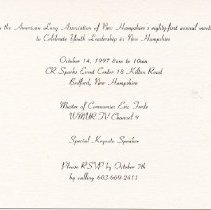 the American Lung Association of New Hampshire's eighty-first annual
to Celebrate Youth Leadership in New Hampshire
October 14, 1997 8am to 10am
CR Sparks Event Center 18 Kilton Road
Bedford, New Hampshire
Master of Ceremonies: Eric Forde
WMUR TV Channel 9
Special Keynote Speaker
Please RSVP by October 7th
by calling 603-669-2411